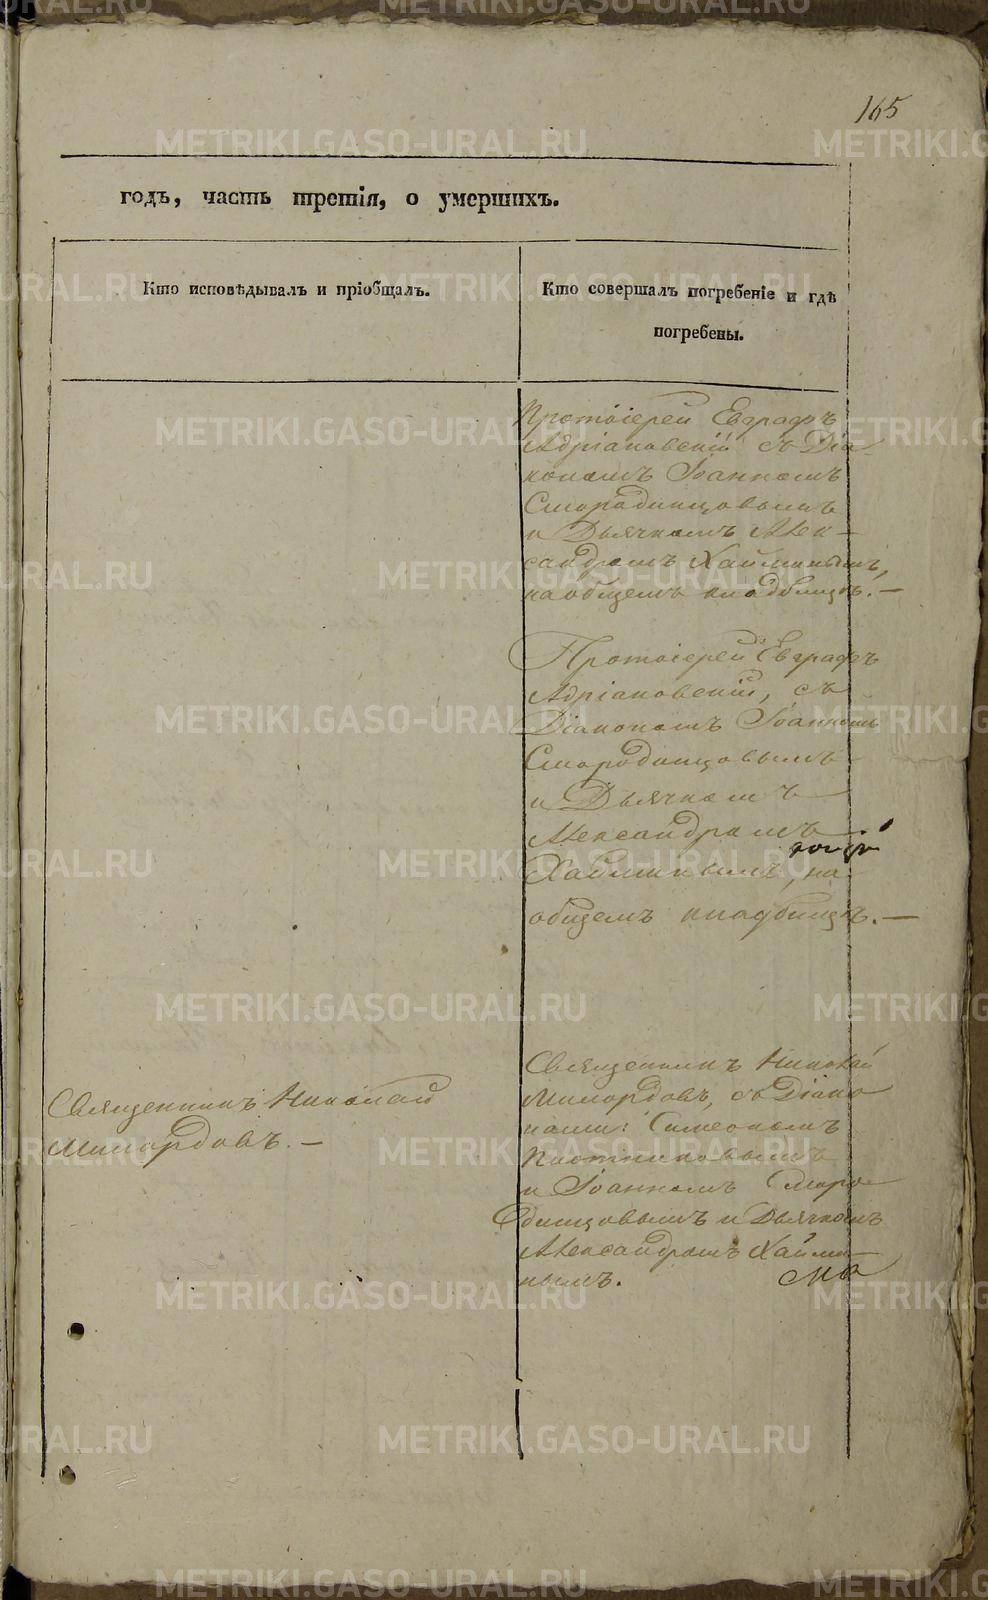 165
годъ, часть третія, о умершихъ.
Кто исповѣдывалъ и пріобщалъ.
Кто совершалъ погребеніе и гдѣ
погребены.
Протоіерей Евграфъ
Адріановскій съ Діа-
кономъ Іоанномъ
Смородинцовымъ
и Дьячкомъ Алек-
сандромъ Хайминымъ,
на общемъ кладбищѣ.—
Протоіерей Евграфъ
Адріановскій, съ
Діакономъ Іоанномъ
Смородинцовымъ
и Дьячкомъ
Александромъ
Хайминымъ, на
общемъ кладбищѣ.—
Священникъ Николай
Милордовъ.—
Священникъ Николай
Милордовъ, съ Діако
нами: Симеономъ
Постниковымъ
и Іоанномъ Сморо
динцовымъ и Дьячкомъ
Александромъ Хайми-
нымъ.
METRIKI.GASO-URAL.RU